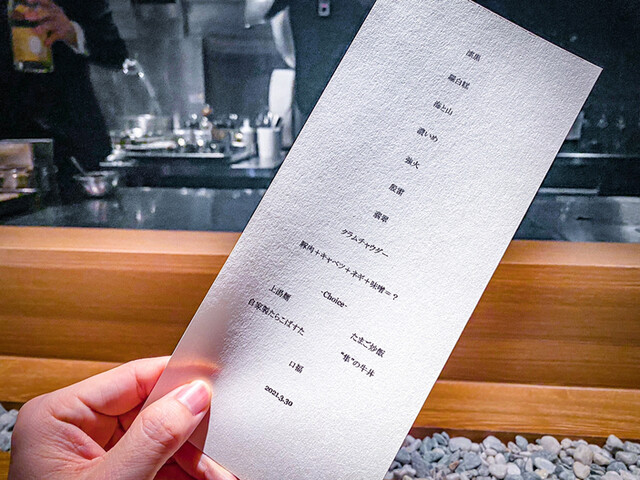 蘿白糕
海と山
濃いめ
強火
翡翠
クラムチャウダー
豚肉+キャベツ+ネギ+味噌=?
-Choice-
上湯麺
たまご炒飯
自家製たらこぱすた
"隼"の牛丼
口福
2021.3.30